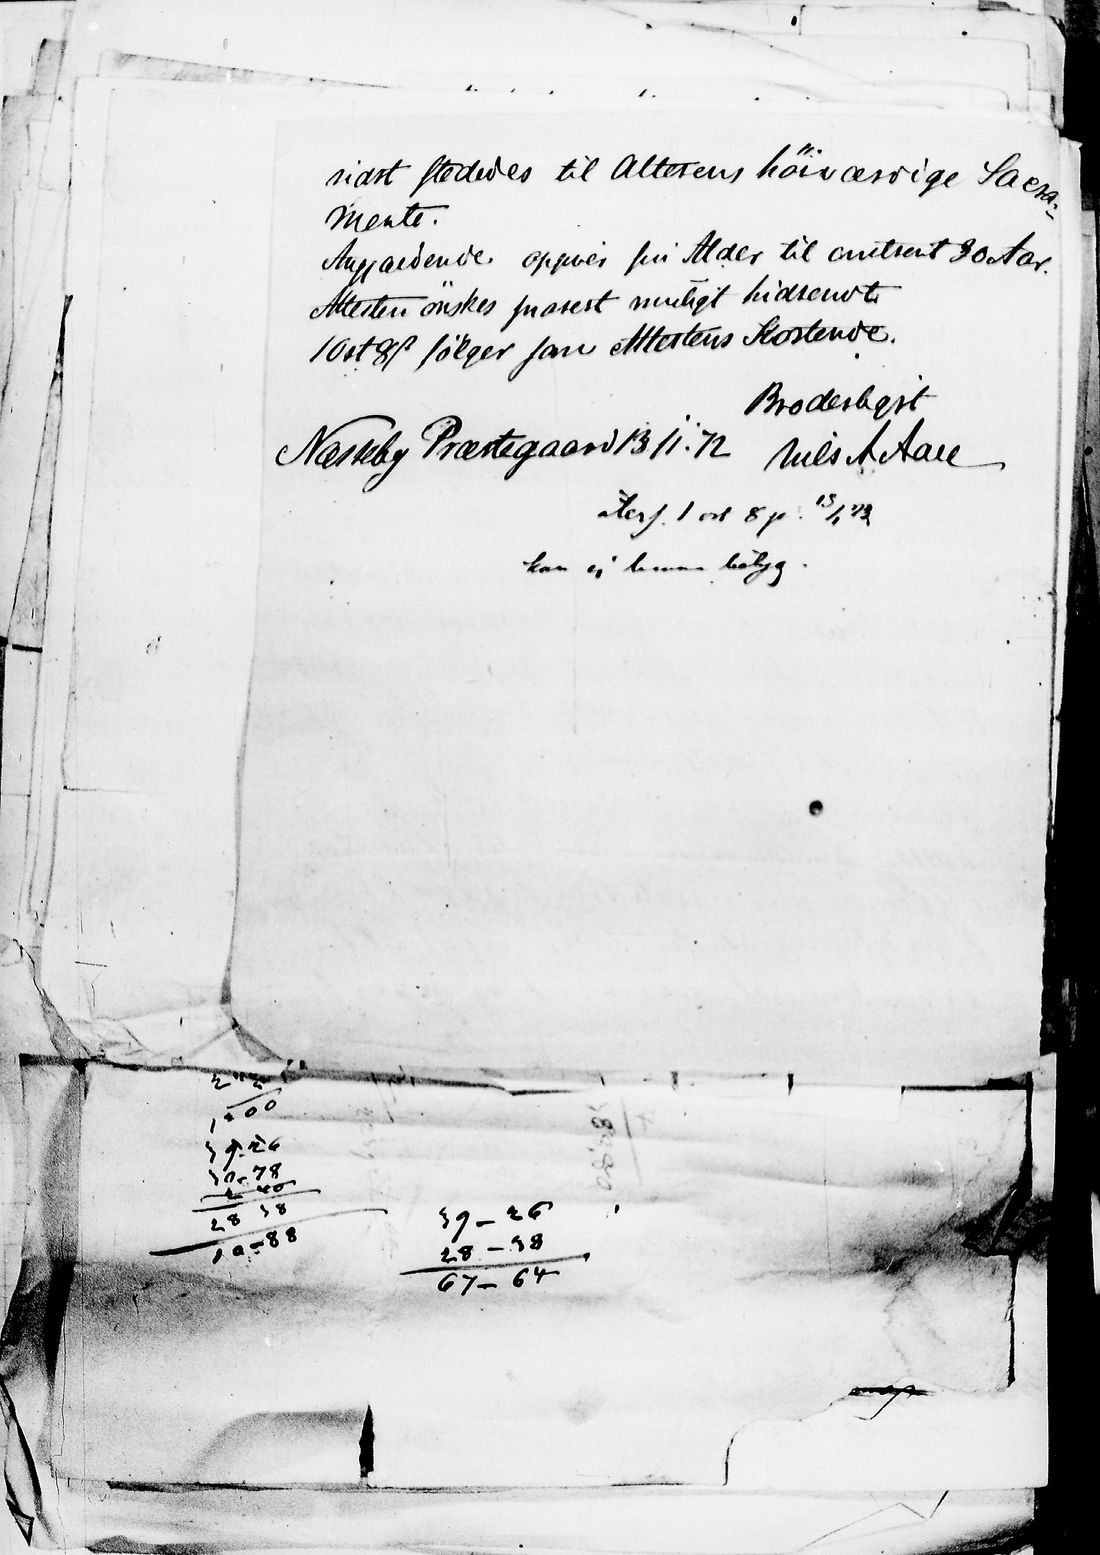 sidst stededes til Alterens höiværdige Sacra=
mente.
Angjældende opgives fin Alder til omtrent 30 Aar.
Attesten önskes snarest muligt hidsendt.
1 Ort 8 fölger som Attestens Kostende.
Broderligst
Næsseby Præstegaard 13/1. 72 Nils A Aall
Åters. 1 ort 8 p. 13/1 73
kan ej betyg.
1-00
39-26
30-78
2 40
28 38
10-88
39-26
28-38
67-64